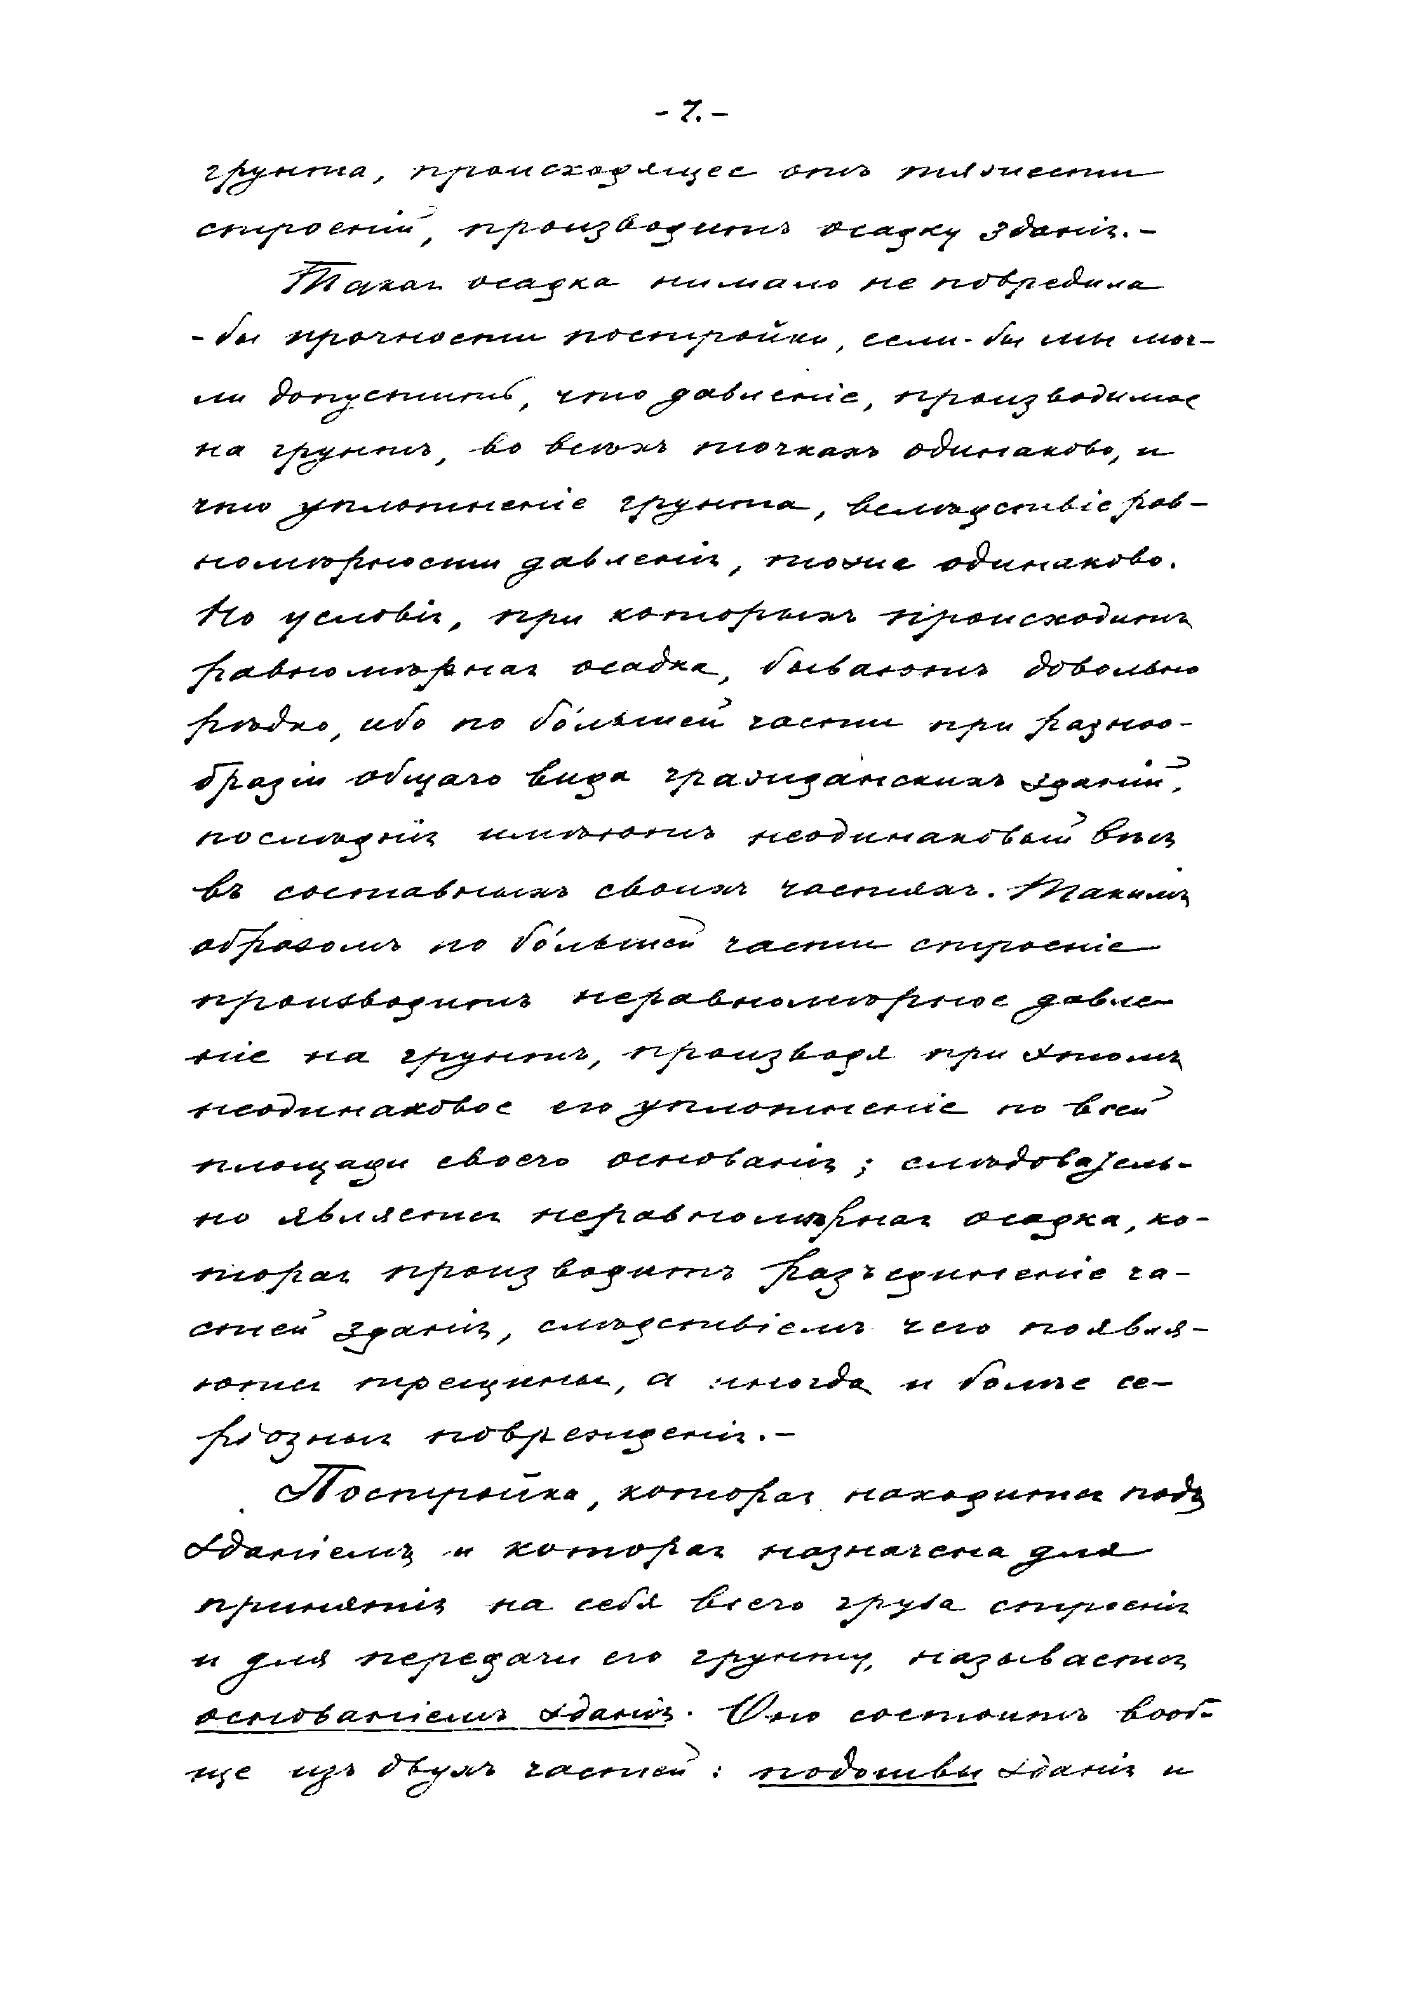 - 7. -
грунта, происходящее отъ тяжести
строеній, производитъ осадку зданія. -
Такая осадка нимало не повредила
- бы прочности постройки, если-бы мы мог-
ли допустить, что давленіе, производимое
на грунтъ, во всѣхъ точкахъ одинаково, и
что уплотненіе грунта, вслѣдствіе рав-
номѣрности давленія, тоже одинаково.
Но условія, при которыхъ происходитъ
равномѣрная осадка, бываютъ довольно
рѣдко, ибо по бóльшей части при разноо-
бразіи общаго вида гражданскихъ зданій,
послѣднія имѣютъ неодинаковый вѣсъ
въ составныхъ своихъ частяхъ. Такимъ
образомъ по бóльшей части строеніе
производитъ неравномѣрное давле-
ніе на грунтъ, производя при этомъ
неодинаковое его уплотненіе по всей
площади своего основанія; слѣдователь-
но является неравномѣрная осадка, ко-
торая производитъ разъединеніе ча-
стей зданія, слѣдствіемъ чего появля-
ются трещины, а иногда и болѣе се-
ріозныя поврежденія. -
Постройка, которая находится подъ
зданіемъ и которая назначена для
принятія на себя всего груза строенія
и для передачи его грунту, называется
основаніемъ зданія. Оно состоитъ вооб-
ще изъ двухъ частей: подошвы зданія и